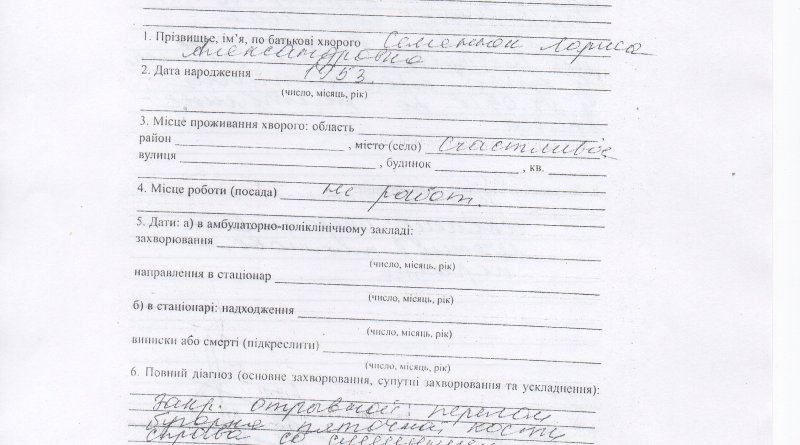 1. Прізвищье, ім'я, по батькові хворого Семенюк Лариса
Александровна
2. Дата народження 1953
(число, місяць, рік)
3. Місце проживання хворого: область
район , місто (село) Счастливое
вулиця , будинок , кв.
4. Місце роботи (посада) не работ.
5. Дати: а) в амбулаторно-поліклінічному закладі:
захворювання
(число, місяць, рік)
направлення в стаціонар
(число, місяць, рік)
б) в стаціонарі: надходження
(число, місяць, рік)
виниски або смерті (підкреслити)
(число, місяць, рік)
6. Повний діагноз (основне захворювання, супутні захворювання та ускладнення):
Закр. отрывной перелом
бугорка пяточной кости
справа со смещением